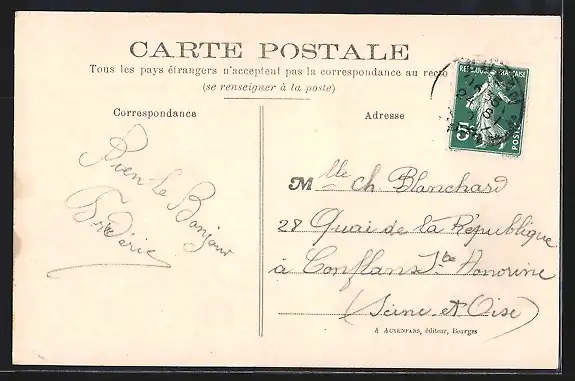 CARTE POSTALE
Tous les pays étrangers n'acceptent pas la correspondance au recto
(se renseigner à la poste)
Correspondance
Adresse
RÉPUBLIQUE FRANÇAISE
5c
POSTES
Bien Le Bonjour
Frédéric
Mlle Ch. Blanchard
28 Quai de la République
à Conflans Ste Honorine
(Seine et Oise)
A AUXENFANS, éditeur, Bourges